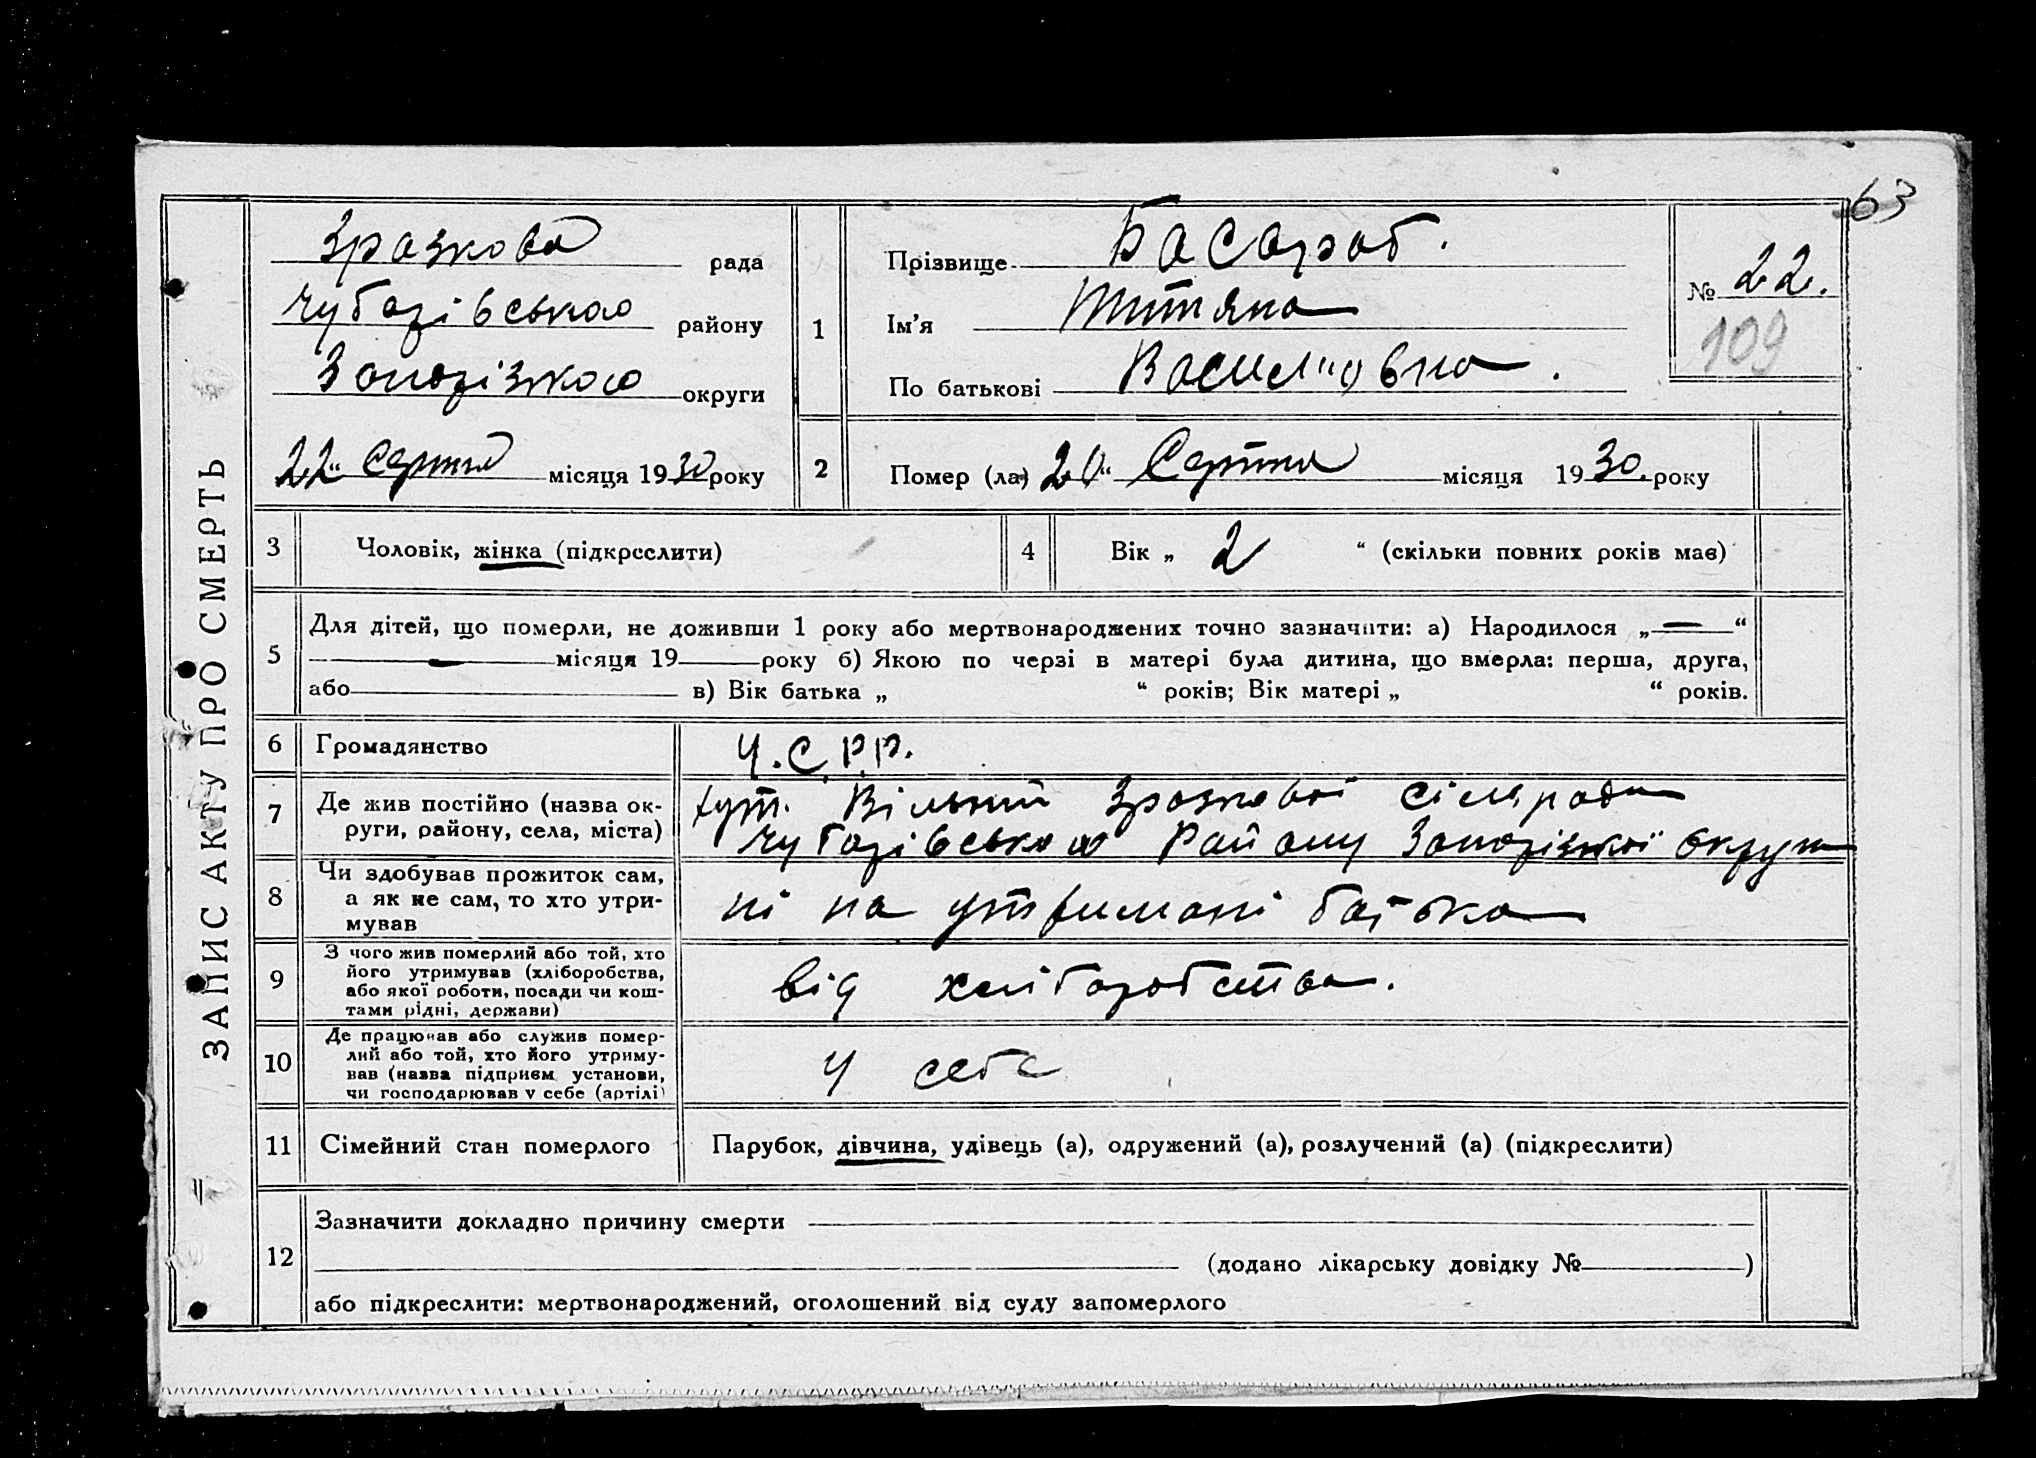 63
ЗАПИС АКТУ ПРО СМЕРТЬ
Зразкова рада
Чубарівського району
Запорізького округи
22" Серпня місяця 1930 року
1
Прізвище Басараб.
Ім'я Титяна
По батькові Василловна.
№ 22.
109
2
Помер (ла) 20" Серпня місяця 1930 року
3
Чоловік, жінка (підкреслити)
4
Вік „ 2 “ (скільки повних років мав)
5
Для дітей, що померли, не доживши 1 року або мертвонароджених точно зазначити: а) Народилося „—“
місяця 19 року б) Якою по черзі в матері була дитина, що вмерла: перша, друга,
або в) Вік батька „ “ років; Вік матері „ “ років.
6
Громадянство
У.С.Р.Р.
7
Де жив постійно (назва ок-
руги, району, села, міста)
хут. Вільний Зразкової сільради
Чубарівського Району Запорізької округи
8
Чи здобував прожиток сам,
а як не сам, то хто утри-
мував
ні на утриманні батька
9
З чого жив померлий або той, хто
його утримував (хліборобства,
або якої роботи, посади чи кош-
тами рідні, держави)
від хліборобства.
10
Де працював або служив помер-
лий або той, хто його утриму-
вав (назва підприєм. установи,
чи господарював у себе (артілі)
У себе
11
Сімейний стан померлого
Парубок, дівчина, удівець (а), одружений (а), розлучений (а) (підкреслити)
12
Зазначити докладно причину смерти
(додано лікарську довідку № )
або підкреслити: мертвонароджений, оголошений від суду запомерлого